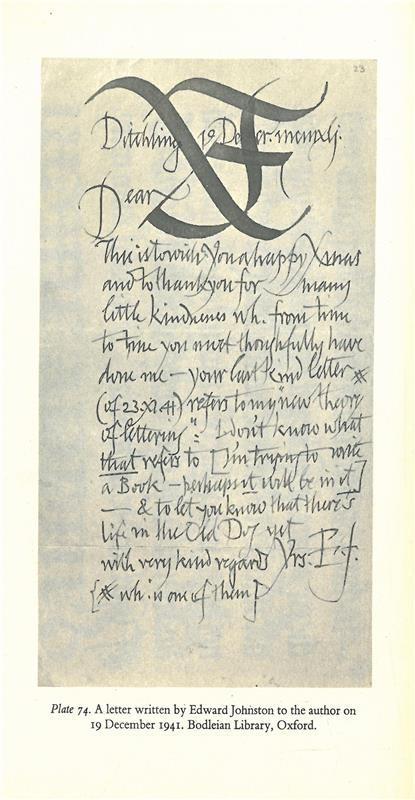 23
XF
Ditchling 19 Decber. mcmxlj.
Dear
This is to wish you a happy Xmas
and to thank you for many
little kindnesses wh. from time
to time you most thoughtfully have
done me — your last kind letter ※
(of 23.XI.41) refers to my "new theory
of lettering": I don't know what
that refers to [I'm trying to write
a Book — perhaps it will be in it]
— & to let you know that there's
life in the Old Dog yet
with very kind regards Yrs. E.J.
[※ wh. is one of them]
Plate 74. A letter written by Edward Johnston to the author on
19 December 1941. Bodleian Library, Oxford.